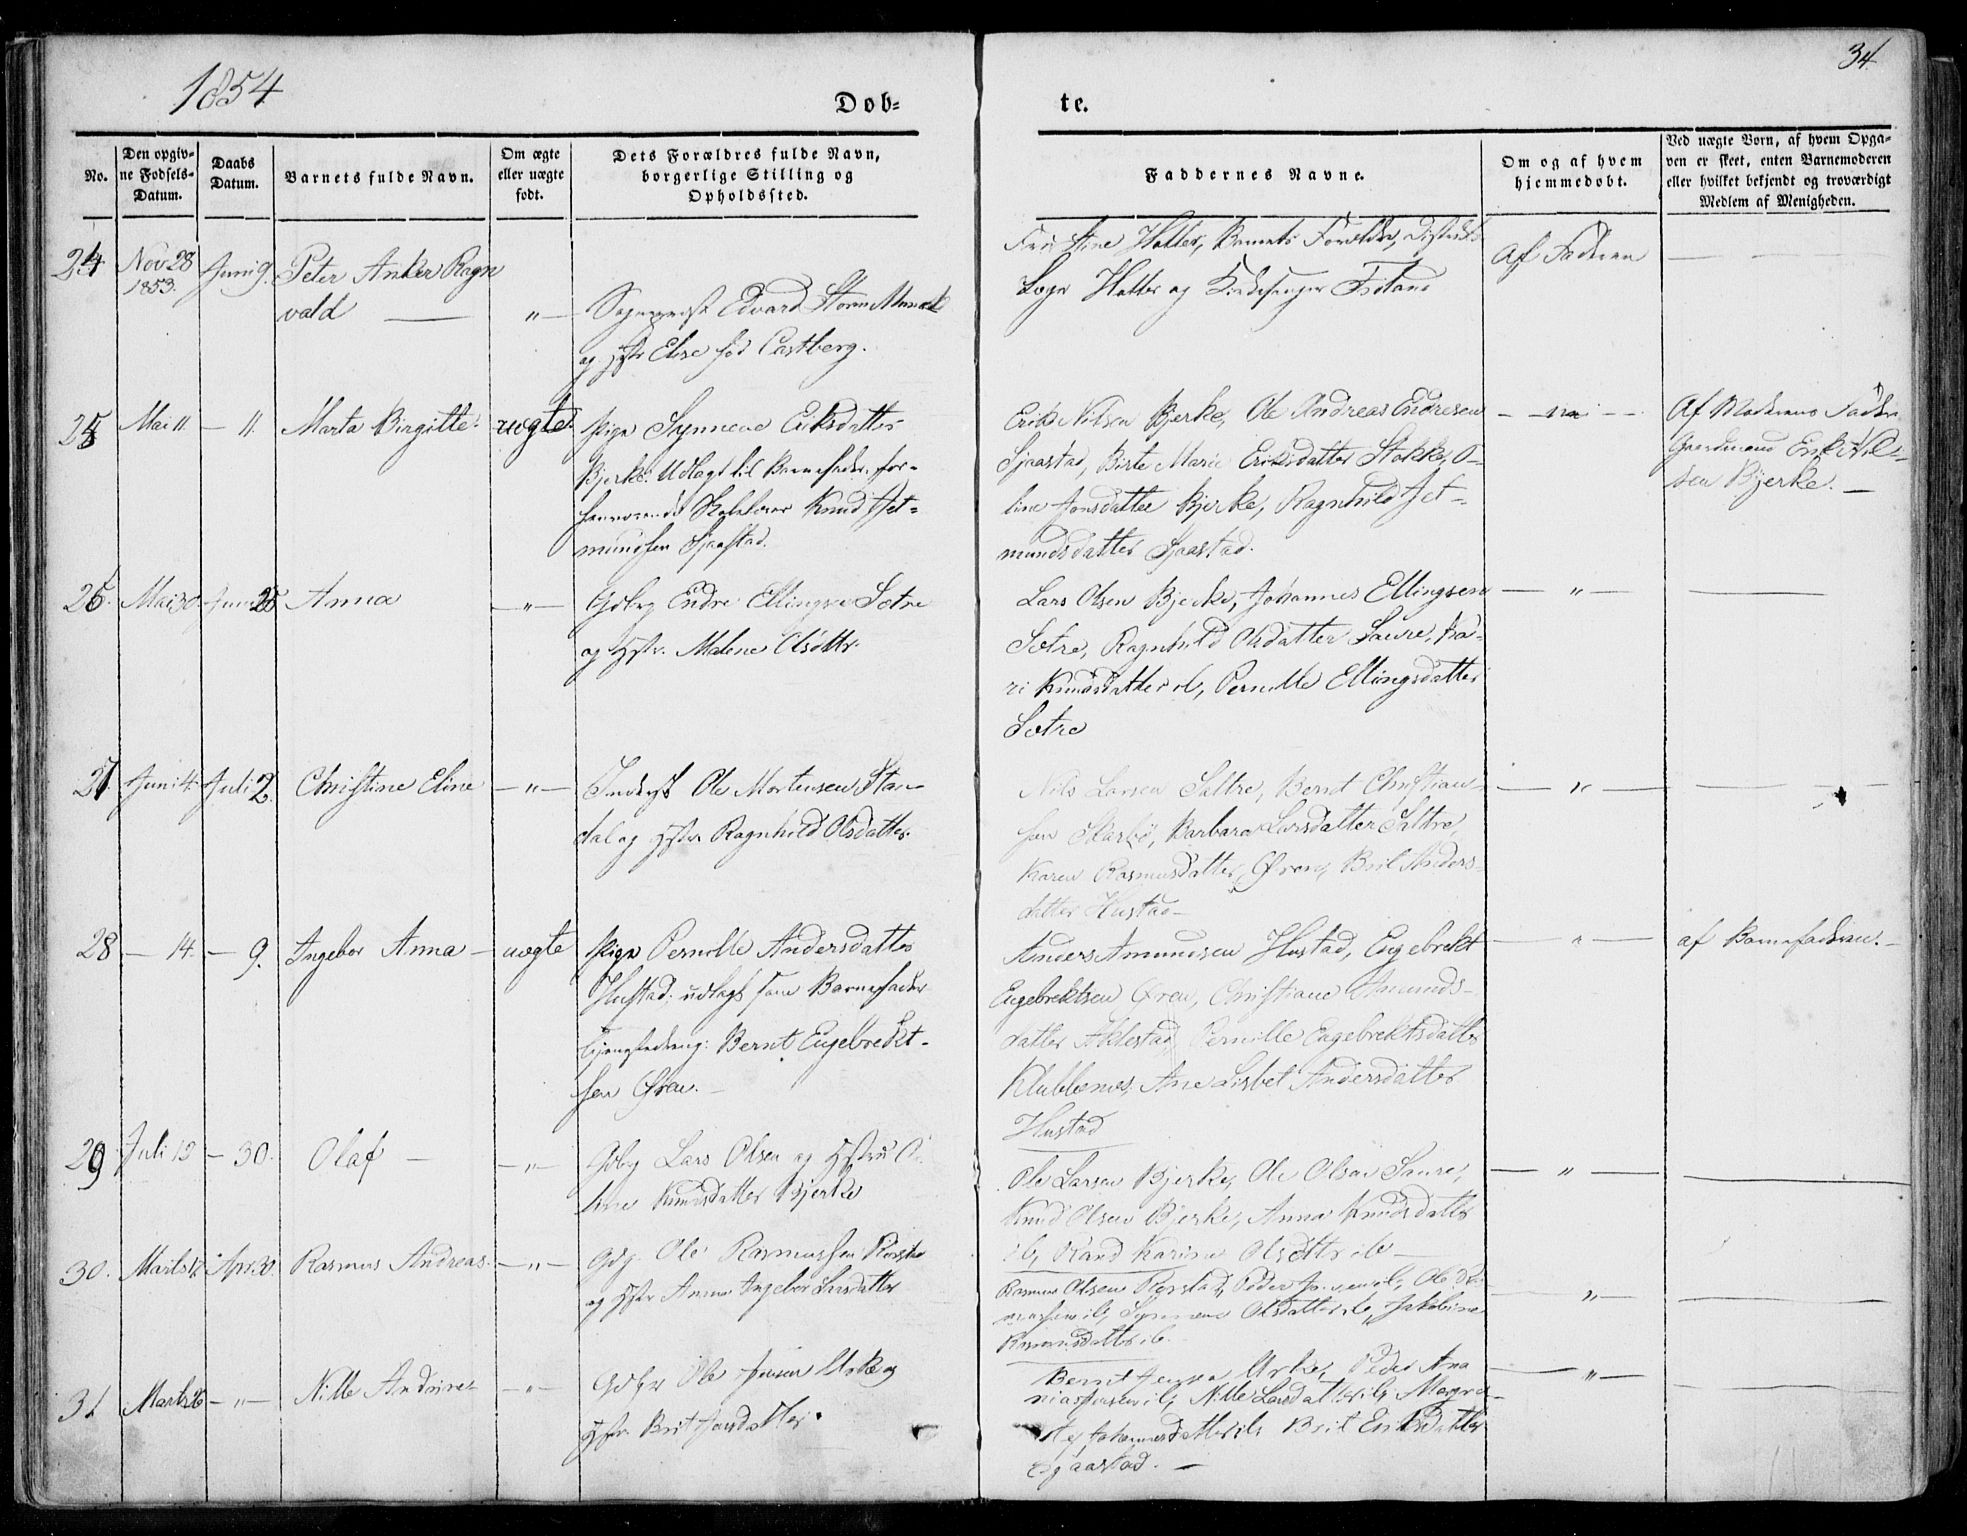 1854
34
Døb=
te.
No.
Den opgiv=
ne Fødsels=
Datum.
Daabs
Datum.
Barnets fulde Navn.
Om ægte
eller uægte
født.
Dets Forældres fulde Navn,
borgerlige Stilling og
Opholdssted.
Faddernes Navne.
Om og af hvem
hjemmedøbt.
Ved uægte Børn, af hvem Opga=
ven er skeet, enten Barnemoderen
eller hvilket bekjendt og troværdigt
Medlem af Menigheden.
24
Nov 28
1853.
Juni 9.
Peter Anker Ragn
vald
"
Sogneprest Edvard Storm Munch
og Hstr Elise fød Castberg.
Stine Holter, Barnets Forældre, Distrikts
Læge Holter og Kirkesanger
Af Faderen
25
Mai 11.
— 11.
Marta Birgitte.
uægte
Pige Synneve Eriksdatter
Bjerke. Udlagt til Barnefader: for=
henværende Skolelærer Knud Jet=
mundsen Sjaastad.
Erik Nilsen Bjerke, Ole Andreas Endresen
Sjaastad, Birte Marie Eriksdatter Stokke, O=
line Jonsdatter Bjerke, Ragnhild Jet=
mundsdatter Sjaastad.
Af Moderens Fader
Gaardmand Erik Nil=
sen Bjerke. —
26.
Mai 30.
Juni 25
Anna
— " —
Gdbrg Endre Ellingsen Sætre
og Hstr. Malene Olsdttr.
Lars Olsen Bjerke, Johannes Ellingsen
Sætre, Ragnhild Olsdatter Saure, Ka=
ri Knudsdatter ib, Pernille Ellingsdatter
Sætre
— " —
27.
Juni 4.
Juli 2.
Christine Eline
— " —
Inderst Ole Mortensen Stan=
dal og Hstr Ragnhild Olsdatter.
Nils Larsen Saltre, Bernt Christian=
sen Skarbø, Barbara Larsdatter Saltre,
Karen Rasmusdatter, Øren, Brit Anders=
datter Hustad —
— " —
28
— 14.
— 9.
Ingebor Anna —
uægte
Pige Pernille Andersdatter
Hustad; udlagt som Barnefader
Bernt Engebrekt=
sen Øren. —
Anders Amundsen Hustad, Engebrekt
Engebrektsen Øren, Christiane Amunds=
datter Aklestad, Pernille Engebrektsdatter
Klubbenes, Ane Lisbet Andersdatter
Hustad
— " —
af Barnefaderen. —
29
Juli 12
— 30.
Olaf —
— " —
Gdbrg Lars Olsen og Hstru O
line Knudsdatter Bjerke
Ole Larsen Bjerke, Ole Olsen Saure,
Knud Olsen Bjerke, Anna Knudsdatter
ib, Rand Karine Olsdttr ib —
— " —
30.
Marts 12
Apr. 30.
Rasmus Andreas.
— " —
Gdg. Ole Rasmussen Rørstad
og Hstr Anne Ingebor Larsdatter
Rasmus Olsen Rørstad, Peder Jensen ib, Ole Ras=
mussen ib, Synneve Olsdatter ib, Jakobine
Rasmusdatter ib.
— " —
31
Marts 26
— " —
Nille Andrine
— " —
Gdbgr Ole Jensen Urke og
Hstr. Brit Jonsdatter.
Bernt Jensen Urke, Peder Ana
niassen ib, Nille Larsdatter ib, Margre=
te Johannesdatter ib, Brit Eriksdatter
Sjaastad. —
— " —